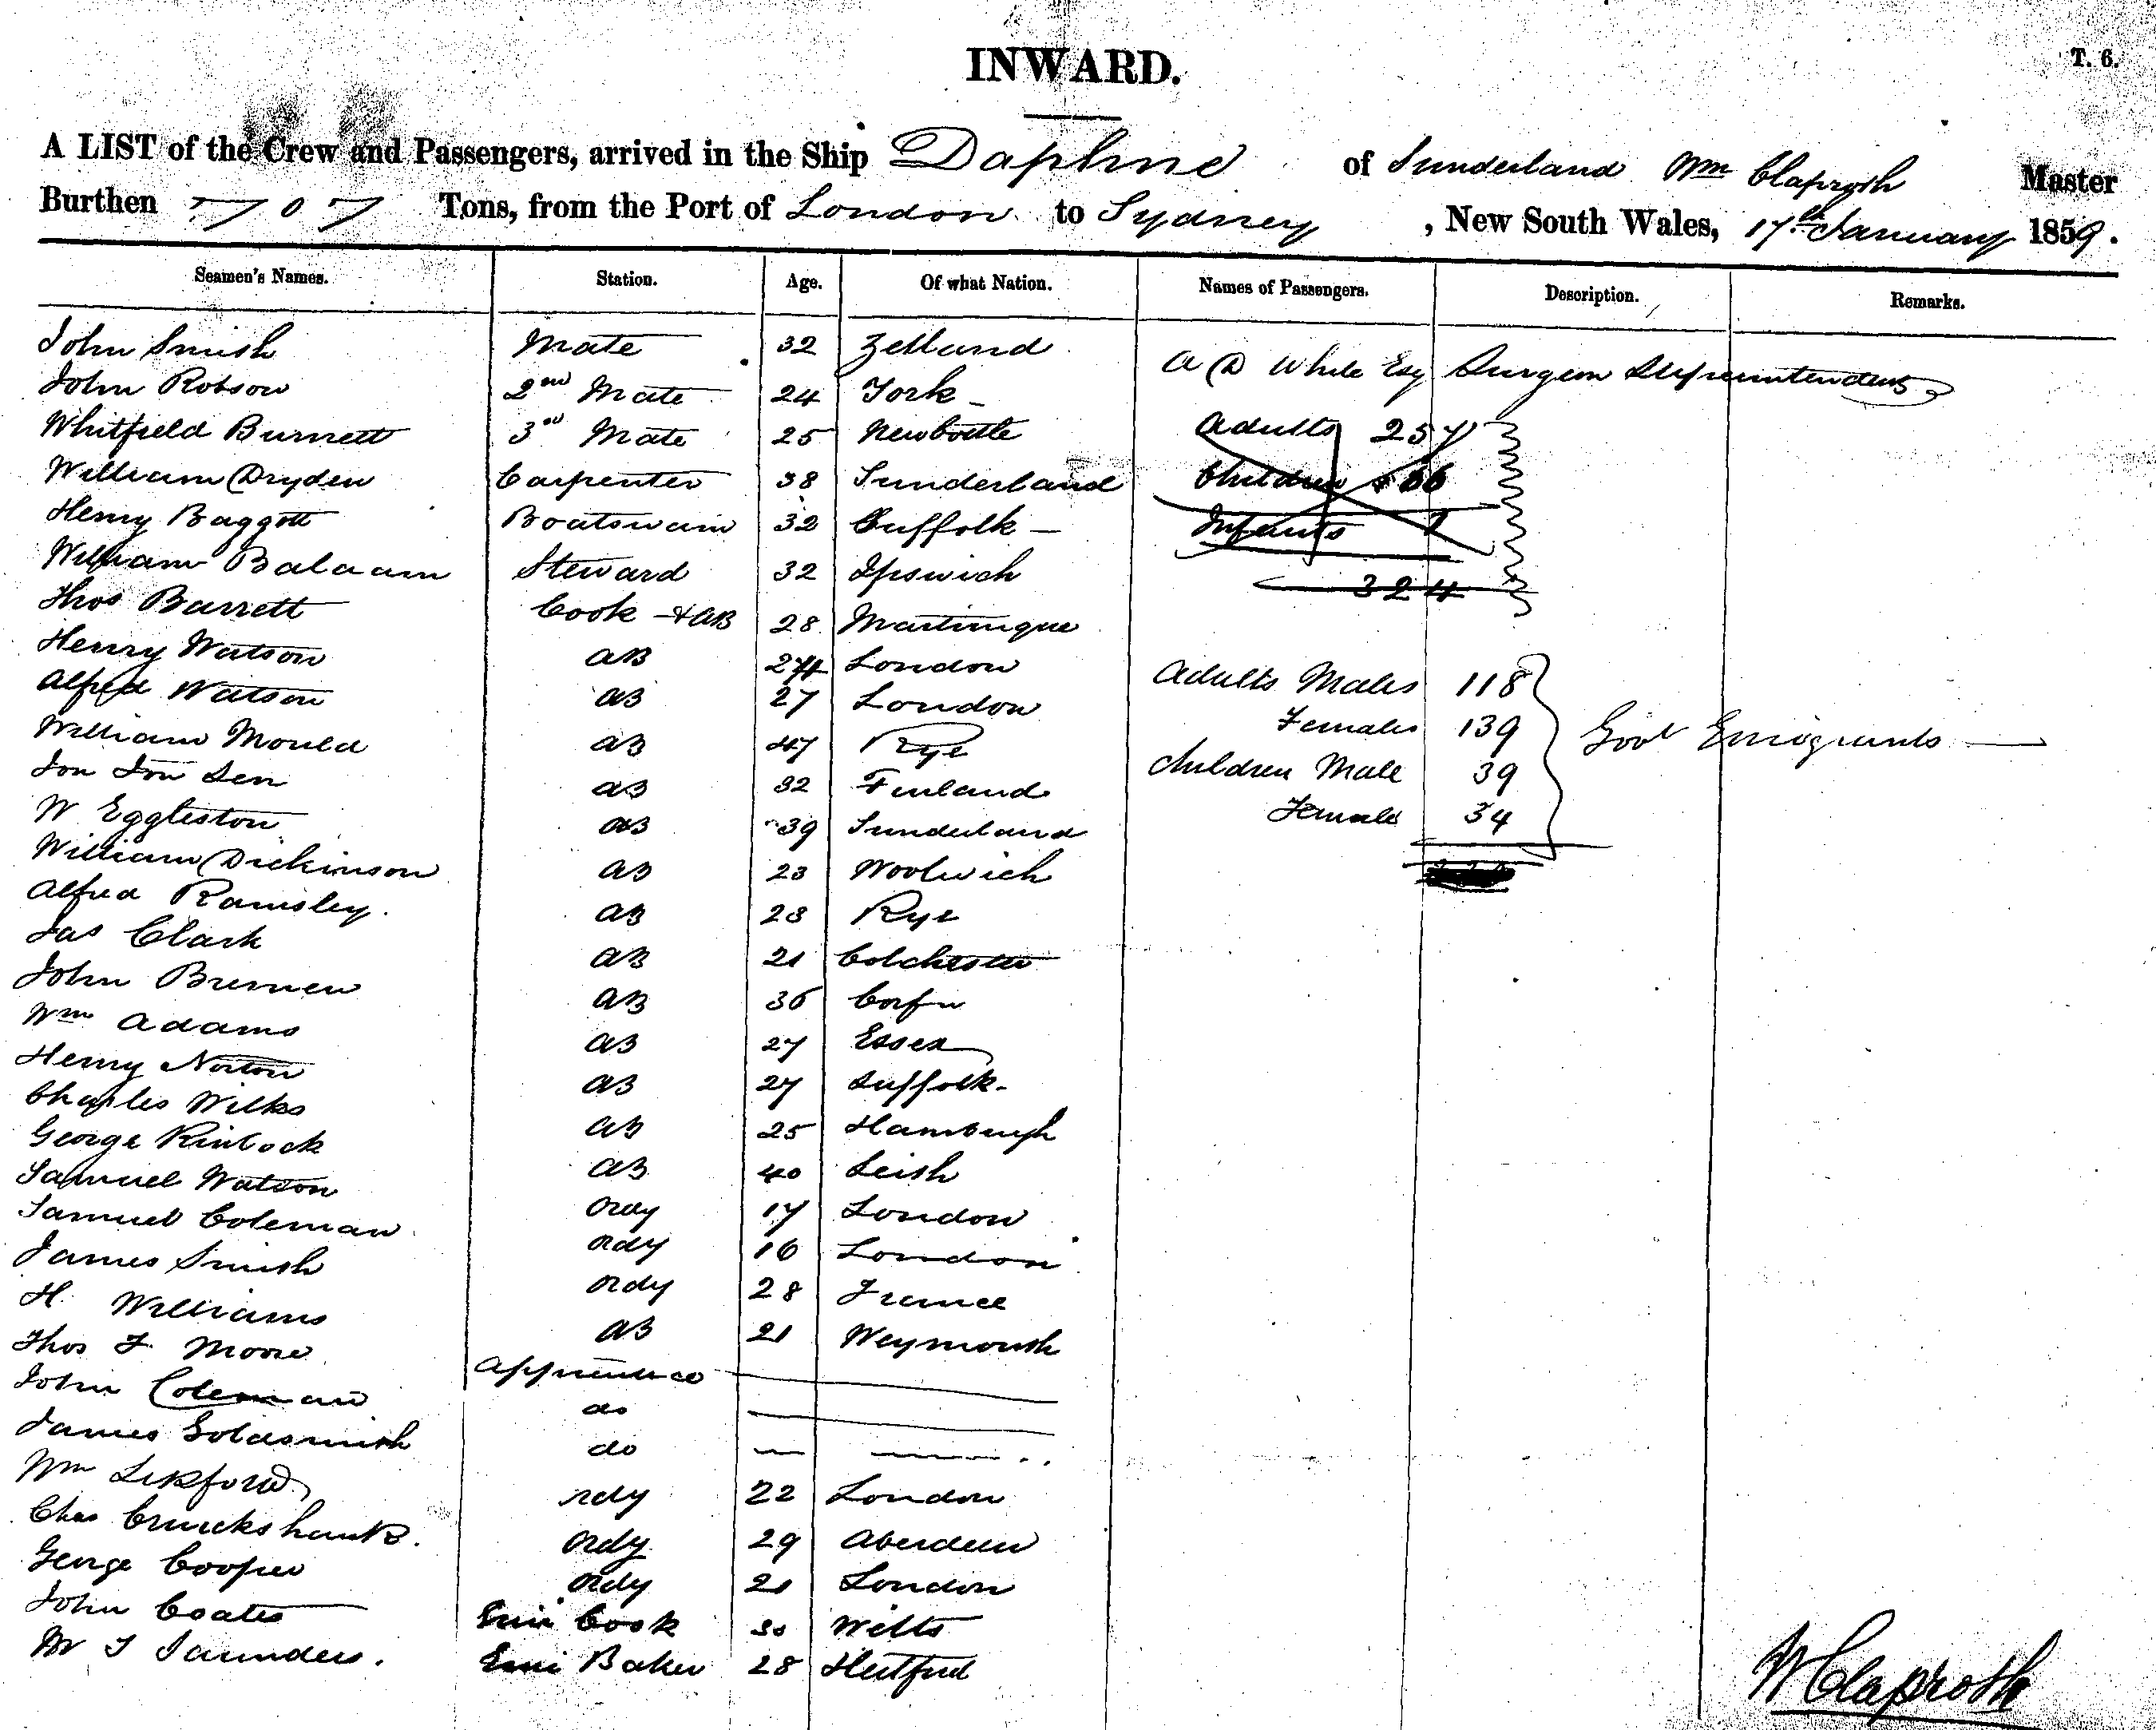 INWARD.
T. 6.
A LIST of the Crew and Passengers, arrived in the Ship Daphne of Sunderland Wm Claproth Master
Burthen 707 Tons, from the Port of London to Sydney, New South Wales, 17th January 1859.
Seamen's Names. Station. Age. Of what Nation. Names of Passengers. Description. Remarks.
John Smith Mate 32 Zetland A D White Esq Surgeon Superintendent
John Robson 2nd Mate 24 York
Whitfield Burnett 3rd Mate 25 Newbottle Adults 257
William Dryden Carpenter 38 Sunderland Children 66
Henry Baggott Boatswain 32 Suffolk Infants 1
William Balaam Steward 32 Ipswich 324
Thos Barrett Cook & AB 28 Martinique
Henry Watson AB 24 London Adults Males 118
Alfred Watson AB 27 London Females 139 Govt Emigrants
William Mould AB 47 Rye Children Male 39
Jon Jon Sen AB 32 Finland Female 34
W Eggleston AB 39 Sunderland
William Dickinson AB 23 Woolwich
Alfred Ramsley. AB 23 Rye
Jas Clark AB 21 Colchester
John Bremen AB 36 Corfu
Wm Adams AB 27 Essex
Henry Norton AB 27 Suffolk
Charles Wilks AB 25 Hamburgh
George Kinlock AB 40 Leith
Samuel Watson Ordy 17 London
Samuel Coleman Ordy 16 London
James Smith Ordy 28 France
H. Williams AB 21 Weymouth
Thos F. Moore Apprentice
John Coleman do
James Goldsmith do
Wm Ordy 22 London
Chas Cruickshank. Ordy 29 Aberdeen
George Cooper Ordy 21 London
John Coates Emi Cook 30 Wilts
W T Saunders. Emi Baker 28 Hertford
W Claproth